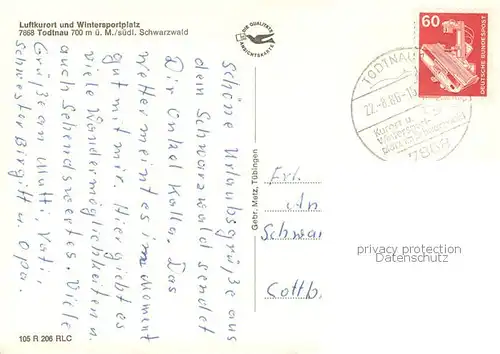 Luftkurort und Wintersportplatz
7868 Todtnau 700 m ü. M./südl. Schwarzwald
DIE QUALITÄTS
ANSICHTSKARTE
60
DEUTSCHE BUNDESPOST
TODTNAU
22.-8.86-15
Kurort u.
Wintersport-
platz im Schwarzwald
7868
Schöne Urlaubsgrüße aus
dem Schwarzwald sendet
Dir Onkel Kalla. Das
Wetter meint es im Moment
gut mit mir. Hier giebt es
viele Wandermöglichkeiten.
auch Sehenswertes. Viele
Grüße an Mutti, Vati,
Schwester Birgitt u. Opa.
Gebr. Metz, Tübingen
Erl.
An
Schwar
Cottb.
privacy protection
Datenschutz
105 R 206 RLC